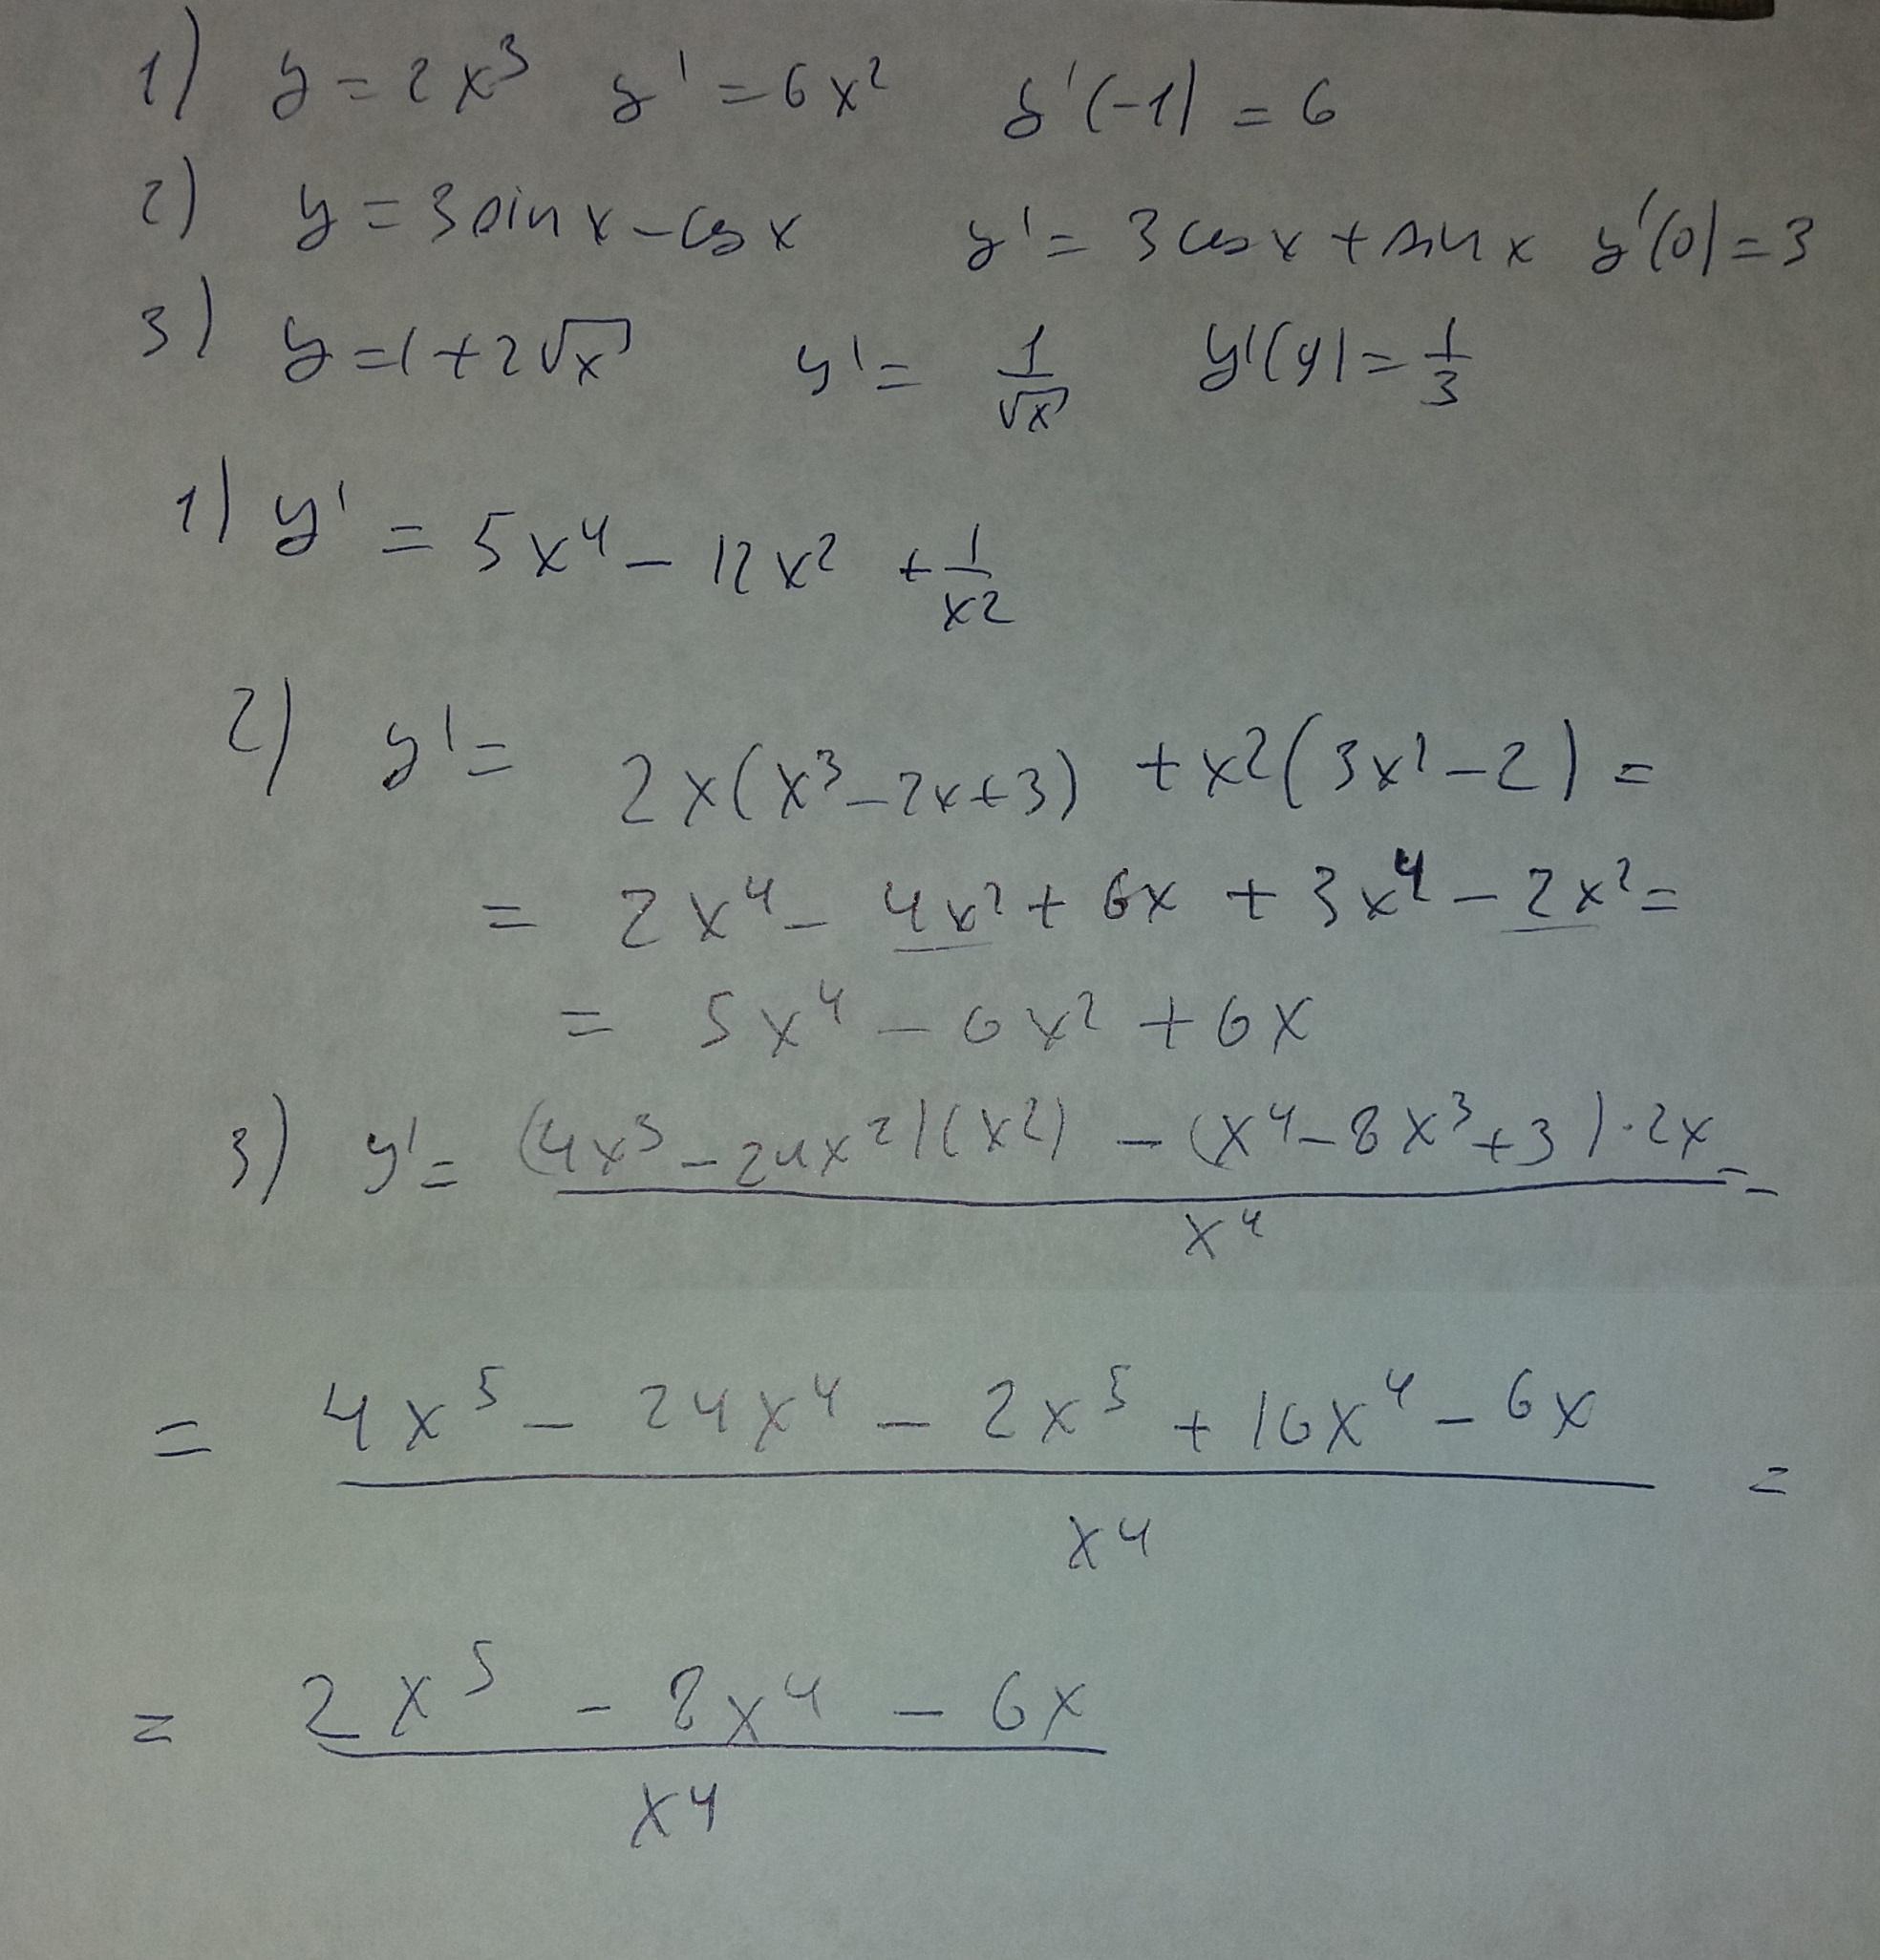 1) y = 2x³ y' = 6x² y'(-1) = 6
2) y = 3 sin x - cos x y' = 3 cos x + sin x y'(0) = 3
3) y = 1 + 2√x y' = 1/√x y'(9) = 1/3
1) y' = 5x⁴ - 12x² + 1/x²
2) y' = 2x(x³ - 2x + 3) + x²(3x² - 2) =
= 2x⁴ - 4x² + 6x + 3x⁴ - 2x² =
= 5x⁴ - 6x² + 6x
3) y' = (4x³ - 24x²)(x²) - (x⁴ - 8x³ + 3)·2x / x⁴ =
= 4x⁵ - 24x⁴ - 2x⁵ + 16x⁴ - 6x / x⁴ =
= 2x⁵ - 8x⁴ - 6x / x⁴